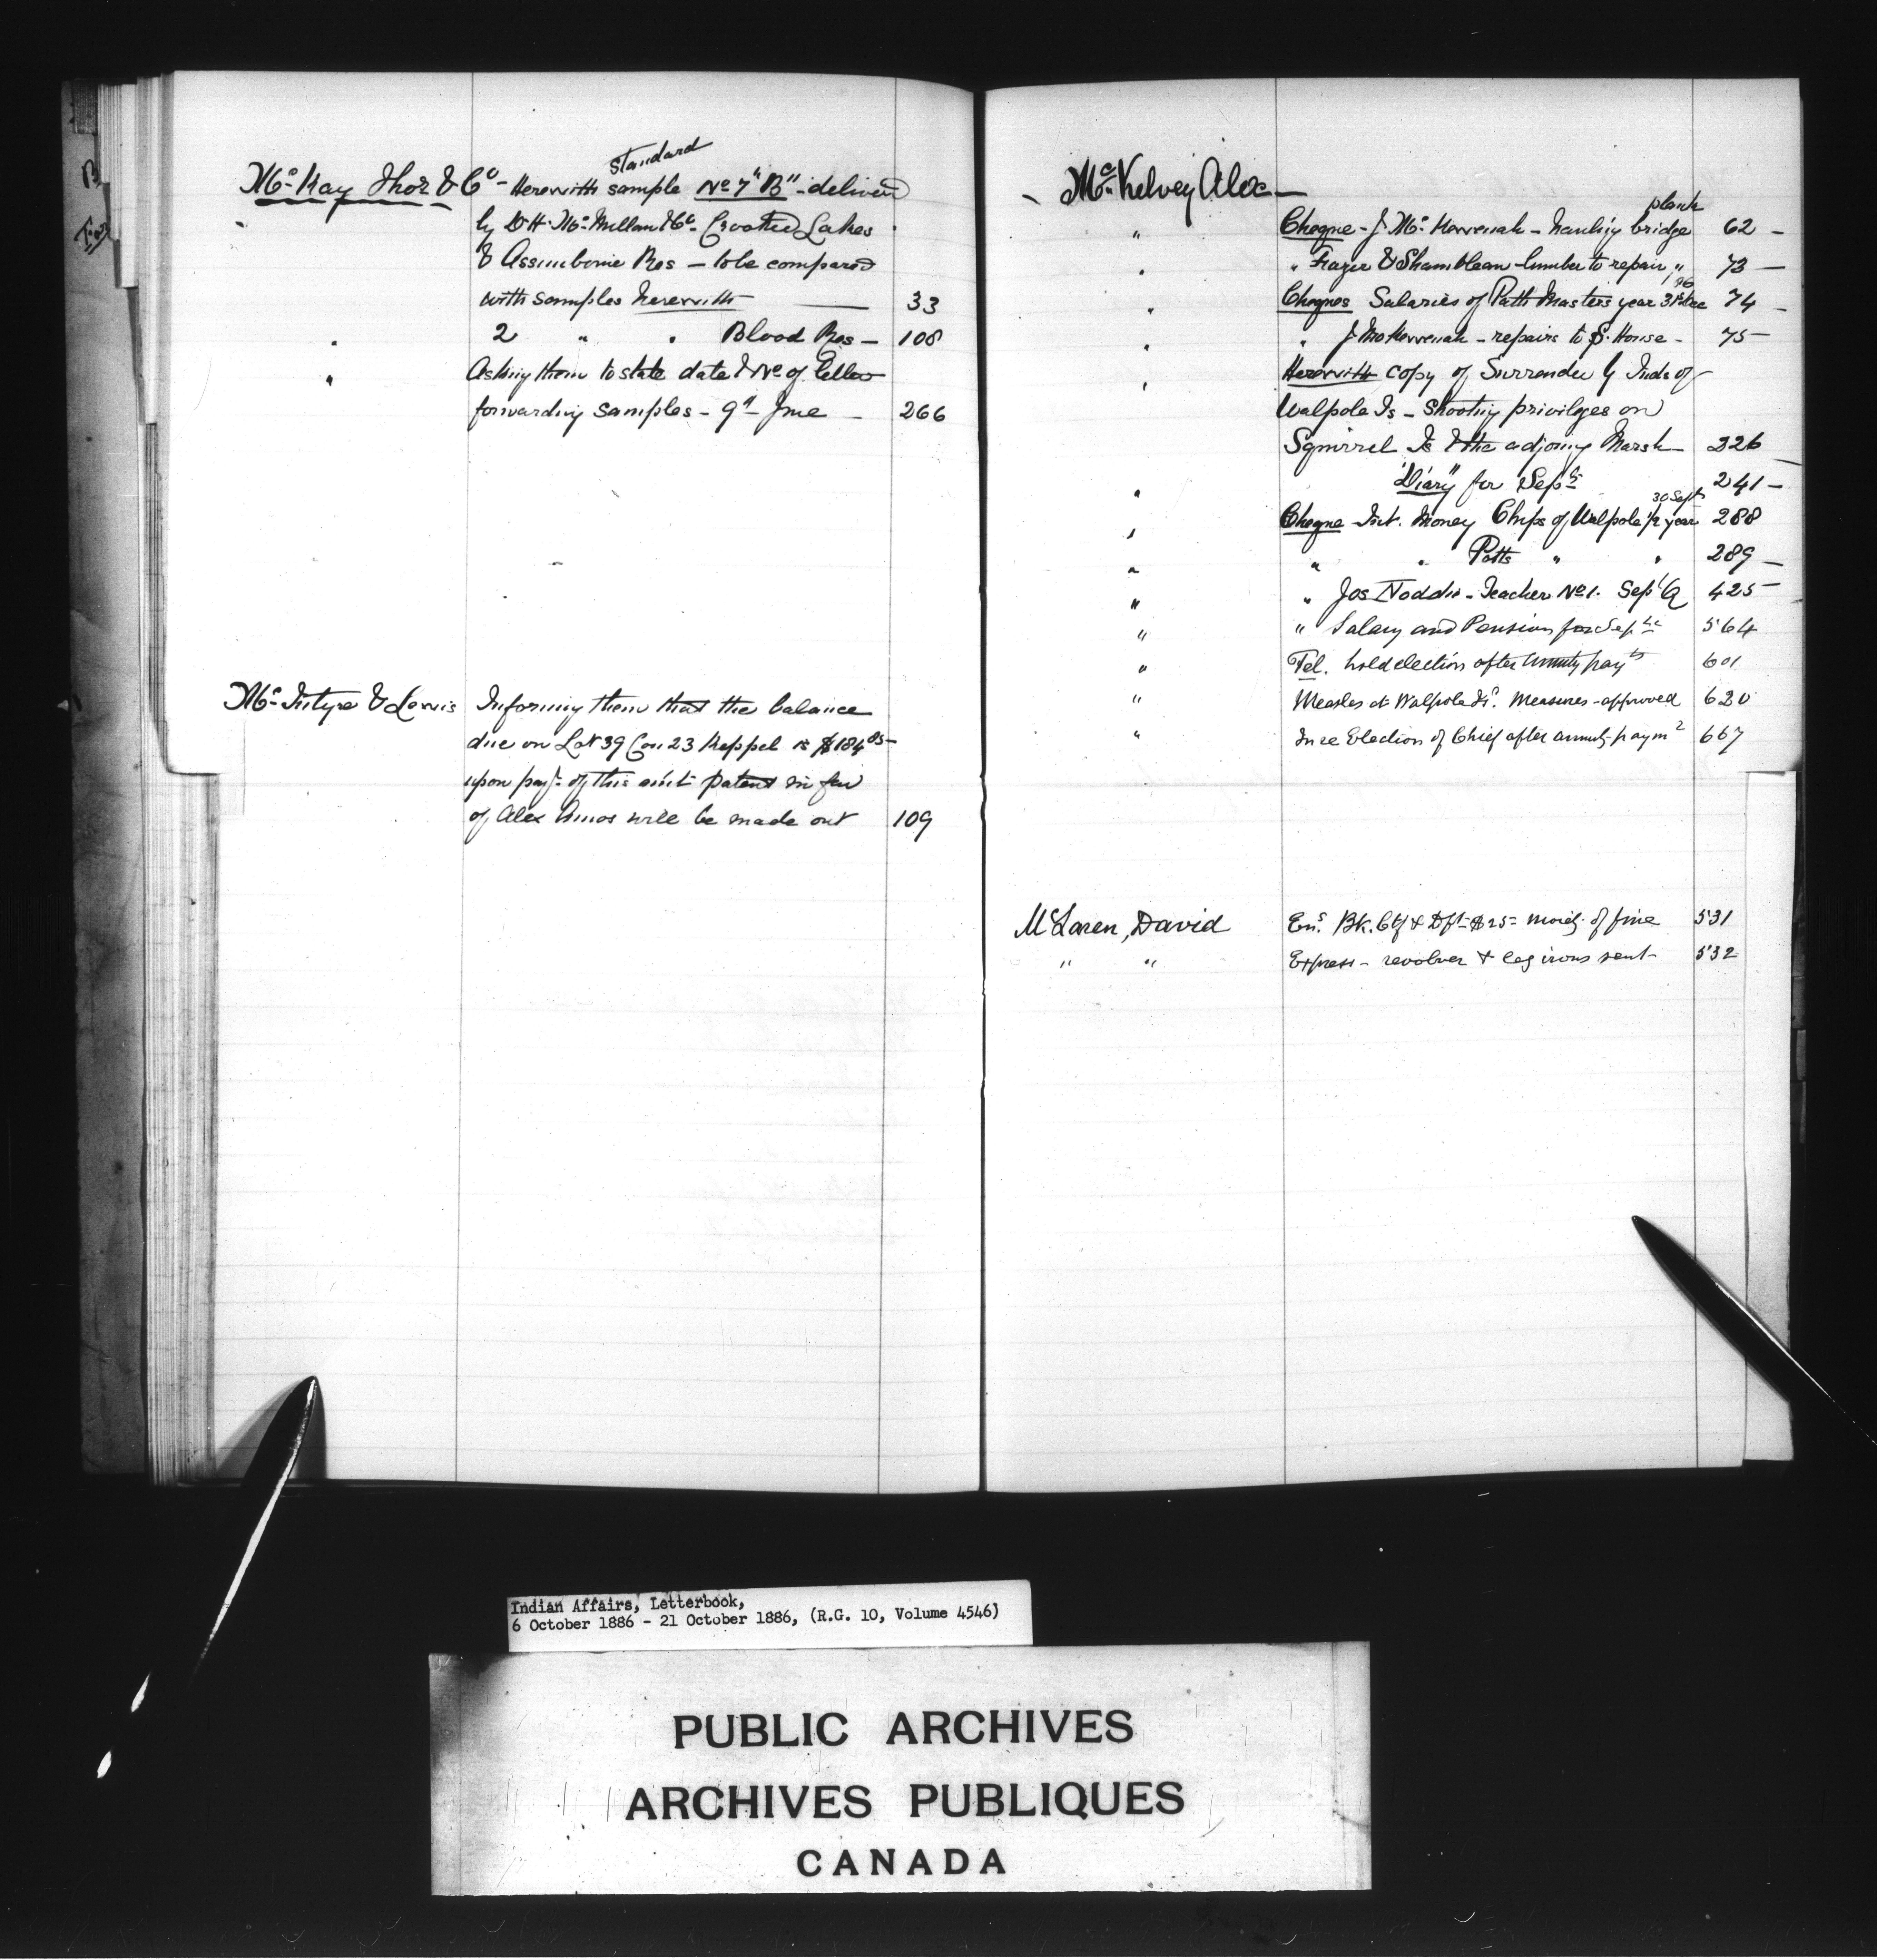 standard
Mc Kay Thos & Co - Herewith sample No 7 "B" - delivered
by D H. McMillan & Co - Crooked Lakes
& Assiniboine Res - to be compared
with samples herewith — 33
" 2 " " Blood Res - 108
" Asking them to state date & No of letter
forwarding samples - 9th June - 266
McIntyre & Lewis Informing them that the balance
due on Lot 39 Con 23 Keppel is $184.05 -
upon payt of this amt patent in fav
of Alex Amos will be made out 109
McKelvey Alex -
plank
" Cheque - J. Mc - hauling bridge 62 -
" " Frazer & Shamblean - lumber to repair " 73 -
86
" Cheques Salaries of Path Masters year 31st Dec 74 -
" " J. - repairs to S. House - 75 -
" Herewith copy of Surrender by Inds of
Walpole Is - Shooting privileges on
Squirrel Is & the adjoing Marsh 226
" "Diary" for Septr 241 -
30 Sept
" Cheque Int. Money Chips of Walpole 1/2 year 288
" " " Potts " " 289 -
" " Jos - Teacher No 1. Sept Q 425 -
" " Salary and Pension for Septr 564
" Tel. hold election after annuity payts 601
" Measles at Walpole Isd. Measures - approved 620
" In re Election of Chief after annuity paymt 667
McLaren, David Enc. Bk. Ctf & Dft - $25 = moiety of fine 531
" " Express - revolver & leg irons sent - 532
Indian Affairs, Letterbook,
6 October 1886 - 21 October 1886, (R.G. 10, Volume 4546)
PUBLIC ARCHIVES
ARCHIVES PUBLIQUES
CANADA